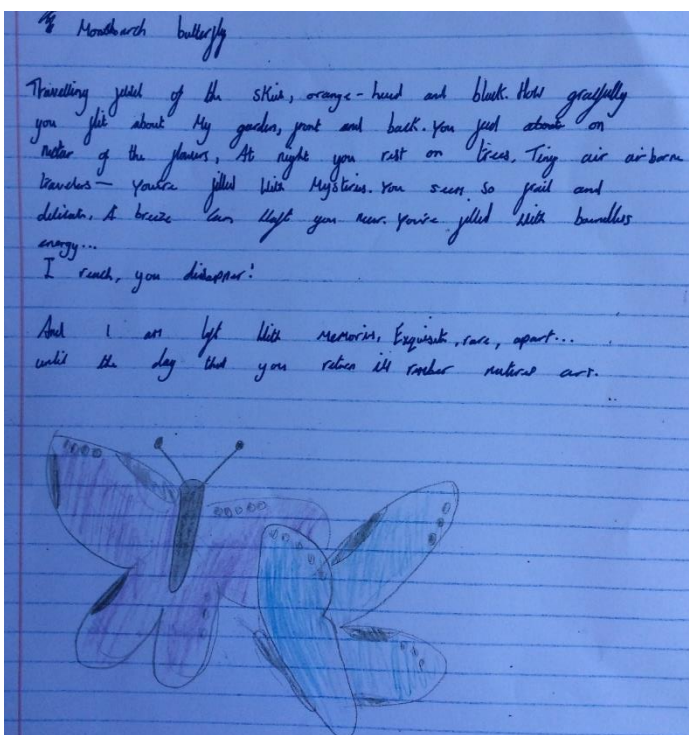 Monarch butterfly
Travelling jewel of the skies, orange-hued and black. How gracefully
you flit about My garden, front and back. You feed about on
nectar of the flowers, At night you rest on trees. Tiny air airborne
travelers— You're filled With Mysteries. You seem so frail and
delicate, A breeze can waft you near. You're filled With boundless
energy...
I reach, you disappear!
And I am left With memories, Exquisite, rare, apart...
until the day that you return i'll natures art.